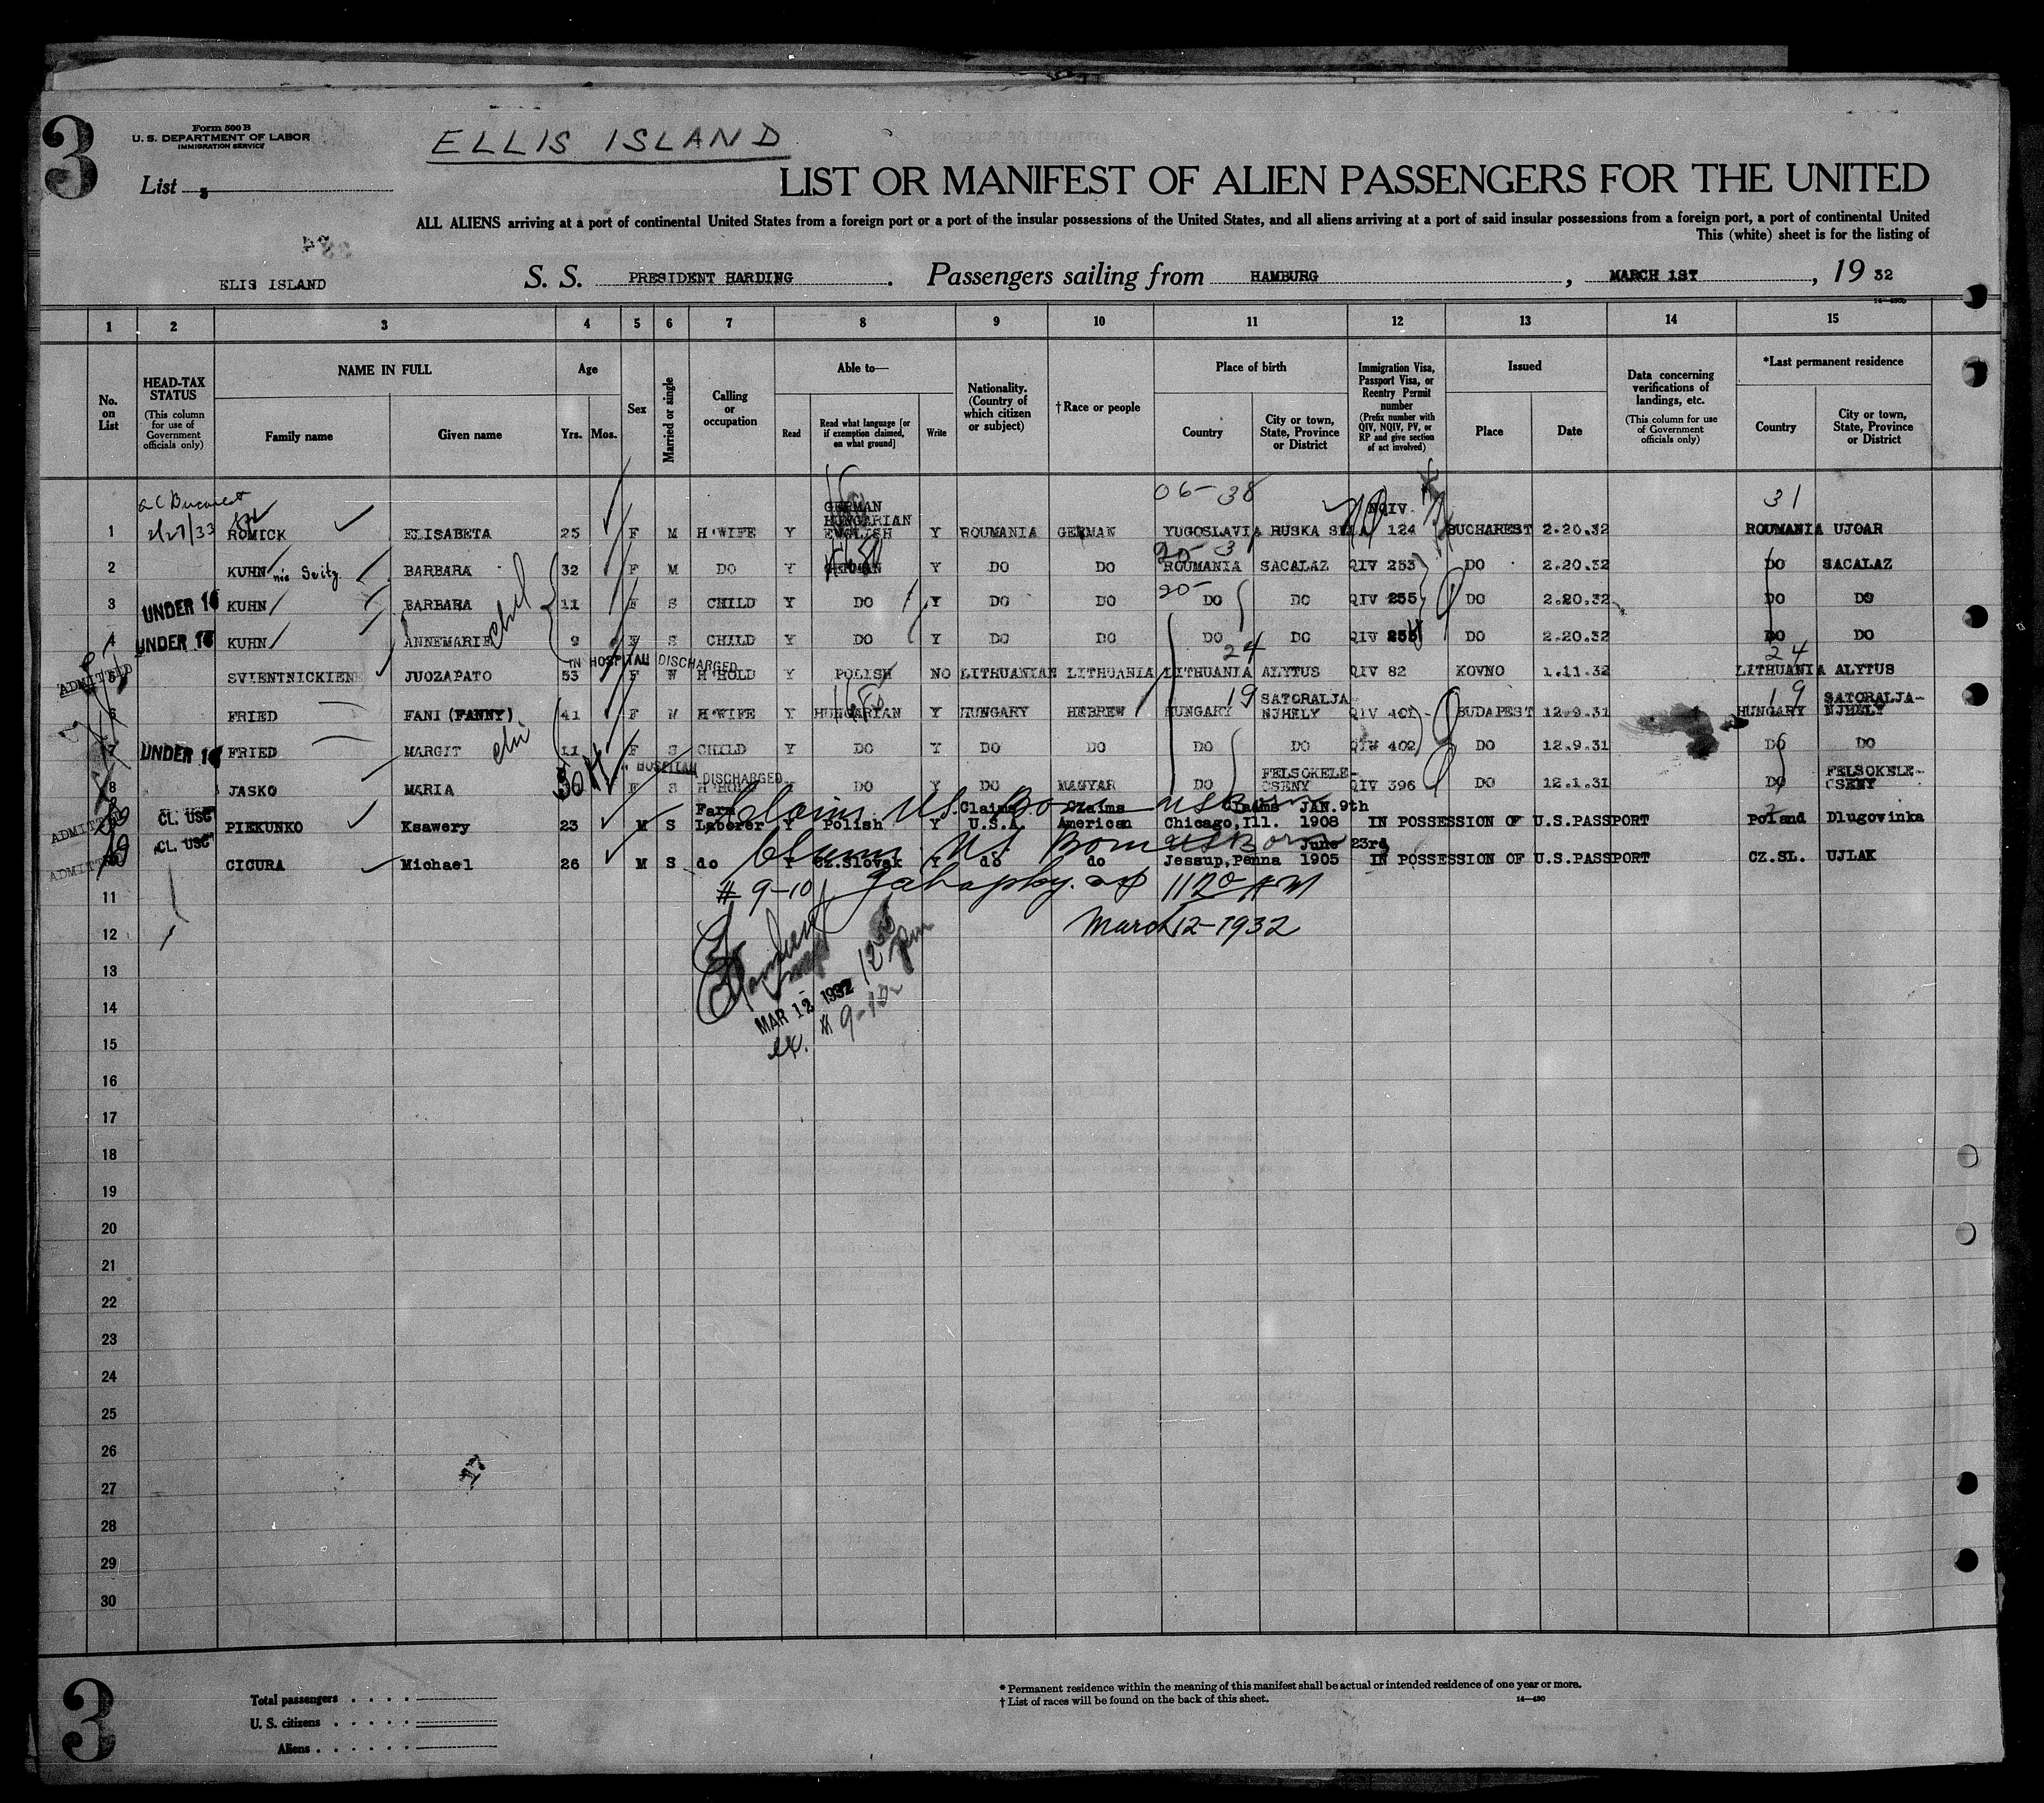 3
Form 500 B
U. S. DEPARTMENT OF LABOR
IMMIGRATION SERVICE
ELLIS ISLAND
List 3
LIST OR MANIFEST OF ALIEN PASSENGERS FOR THE UNITED
ALL ALIENS arriving at a port of continental United States from a foreign port or a port of the insular possessions of the United States, and all aliens arriving at a port of said insular possessions from a foreign port, a port of continental United
This (white) sheet is for the listing of
ELIS ISLAND S. S. PRESIDENT HARDING. Passengers sailing from HAMBURG, MARCH 1ST, 19 32
1 2 3 4 5 6 7 8 9 10 11 12 13 14 15
No. on List
HEAD-TAX STATUS (This column for use of Government officials only)
NAME IN FULL Family name Given name
Age Yrs. Mos.
Sex
Married or single
Calling or occupation
Able to— Read Read what language [or if exemption claimed, on what ground] Write
Nationality. (Country of which citizen or subject)
†Race or people
Place of birth Country City or town, State, Province or District
Immigration Visa, Passport Visa, or Reentry Permit number (Prefix number with QIV, NQIV, PV, or RP and give section of act involved)
Issued Place Date
Data concerning verifications of landings, etc. (This column for use of Government officials only)
*Last permanent residence Country City or town, State, Province or District
06-38 31
1 2/27/33 ROMICK ELISABETA 25 F M H'WIFE Y GERMAN HUNGARIAN ENGLISH Y ROUMANIA GERMAN YUGOSLAVIA RUSKA NQIV 124 BUCHAREST 2.20.32 ROUMANIA UJOAR
20- 3
2 KUHN BARBARA 32 F M DO Y GERMAN Y DO DO ROUMANIA SACALAZ QIV 253 DO 2.20.32 DO SACALAZ
20-
3 UNDER 16 KUHN BARBARA 11 F S CHILD Y DO Y DO DO DO DO QIV 255 DO 2.20.32 DO DO
4 UNDER 16 KUHN ANNEMARIE 9 F S CHILD Y DO Y DO DO DO DO QIV DO 2.20.32 DO DO
IN HOSPITAL DISCHARGED 24 24
ADMITTED 5 SVIENTNICKIENE JUOZAPATO 53 F W H'HOLD Y POLISH NO LITHUANIAN LITHUANIA LITHUANIA ALYTUS QIV 82 KOVNO 1.11.32 LITHUANIA ALYTUS
19 19
6 FRIED FANI (FANNY) 41 F M H'WIFE Y HUNGARIAN Y HUNGARY HEBREW HUNGARY SATORALJA-NJHELY QIV 401 BUDAPEST 12.9.31 HUNGARY SATORALJA-NJHELY
7 UNDER 16 FRIED MARGIT 11 F S CHILD Y DO Y DO DO DO DO QIV 402 DO 12.9.31 DO DO
HOSPITAL DISCHARGED
8 JASKO MARIA 30 F S H'HOLD Y DO Y DO MAGYAR DO FELSOKELE-CSENY QIV 396 DO 12.1.31 DO FELSOKELE-CSENY
Claims US. Born US Born
ADMITTED 9 CL. USC PIEKUNKO Ksawery 23 M S Farm Laborer Y Polish Y Claims U.S.A. Claims American Claims Chicago,Ill. JAN.9th 1908 IN POSSESSION OF U.S.PASSPORT 2 Poland Dlugovinka
Claims US Born US Born
ADMITTED 10 CL. USC CICURA Michael 26 M S do Y Cz.Slovak Y do do Jessup,Penna June 23rd 1905 IN POSSESSION OF U.S.PASSPORT CZ.SL. UJLAK
11 # 9-10 1120 AM
12 March 12-1932
13
14 MAR 12 1932
15 ex. # 9-10
16
17
18
19
20
21
22
23
24
25
26
27 17
28
29
30
3
Total passengers . . . .
U. S. citizens . . . . .
Aliens . . . . . .
* Permanent residence within the meaning of this manifest shall be actual or intended residence of one year or more.
† List of races will be found on the back of this sheet. 14—430